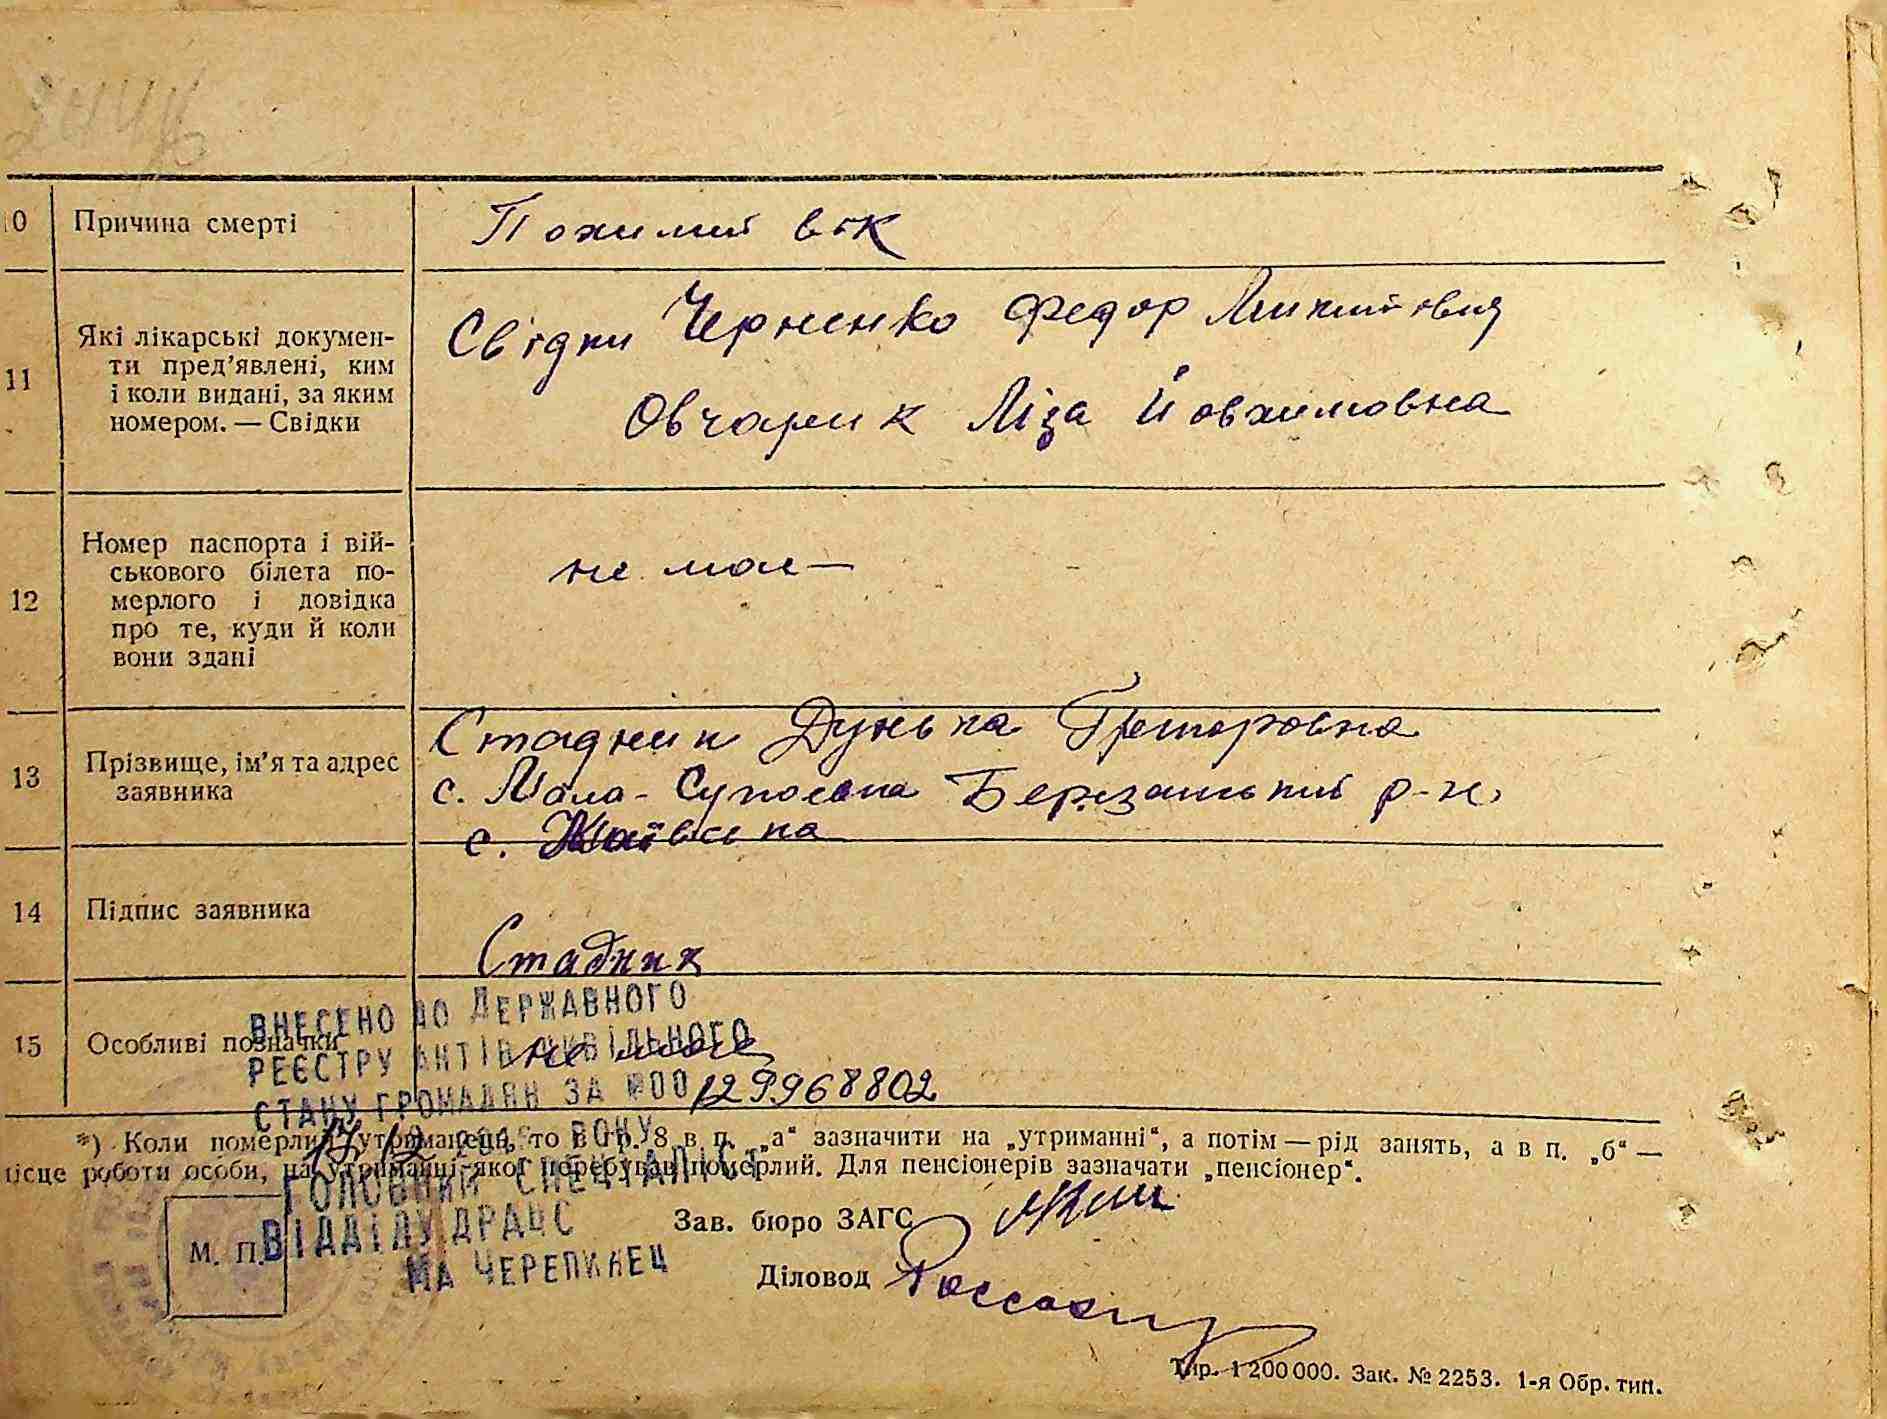 10 Причина смерті Похилий вік
Свідки Черненко Федор Микитович
Овчарик Ліза Йовхимовна
11 Які лікарські докумен-
ти пред’явлені, ким
і коли видані, за яким
номером. — Свідки
12 Номер паспорта і вій-
ськового білета по-
мерлого і довідка
про те, куди й коли
вони здані
не має —
13 Прізвище, ім’я та адрес
заявника
Стадник Дунька Григоровна
с. Мала-Супоевка Березанський р-н.
с.
14 Підпис заявника
Стадник
15 Особливі позначки
не має
ВНЕСЕНО ДО ДЕРЖАВНОГО
РЕЄСТРУ АКТІВ ЦИВІЛЬНОГО
СТАНУ ГРОМАДЯН ЗА №00129968802
РОКУ
ГОЛОВНИЙ СПЕЦІАЛІСТ
ВІДДІЛУ ДРАЦС
МА ЧЕРЕПИНЕЦ
*) Коли померлий утриманець, то в гр. 8 в п. „а“ зазначити на „утриманні“, а потім — рід занять, а в п. „б“ —
місце роботи особи, на утриманні якої перебував померлий. Для пенсіонерів зазначати „пенсіонер“.
М. П.
Зав. бюро ЗАГС
Діловод
Тир. 1 200 000. Зак. № 2253. 1-я Обр. тип.